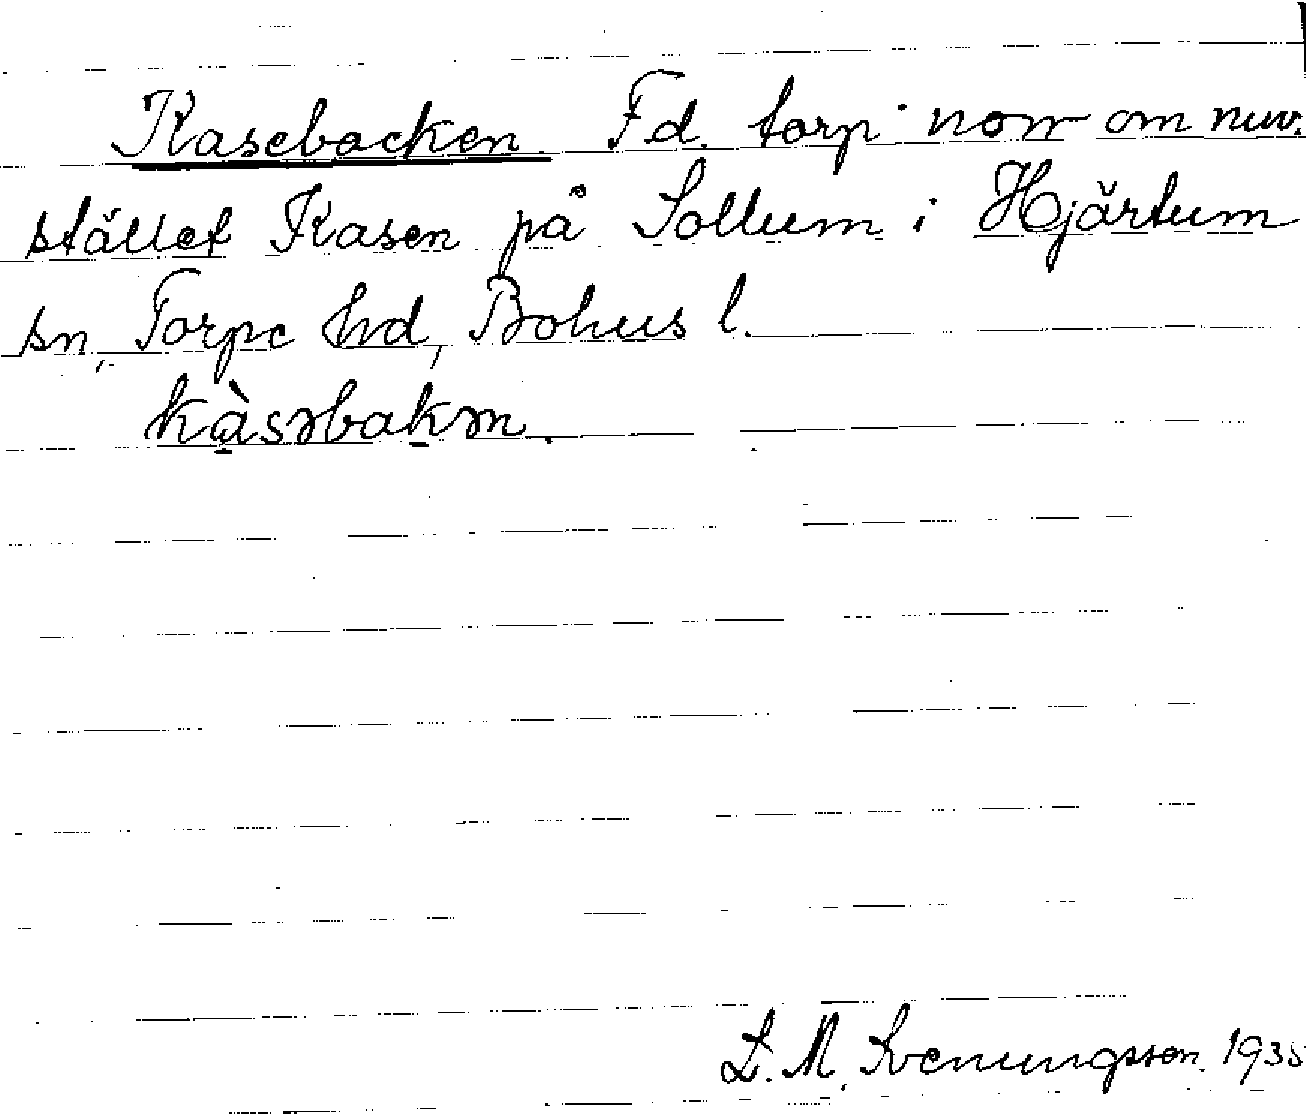 Kasebacken. Fd. torp norr om nuv.
stället Kasen på Sollum i Hjärtum
sn, Torpe hd, Bohus l.
kàsəbakən.
L. M. Svenungsson. 1935